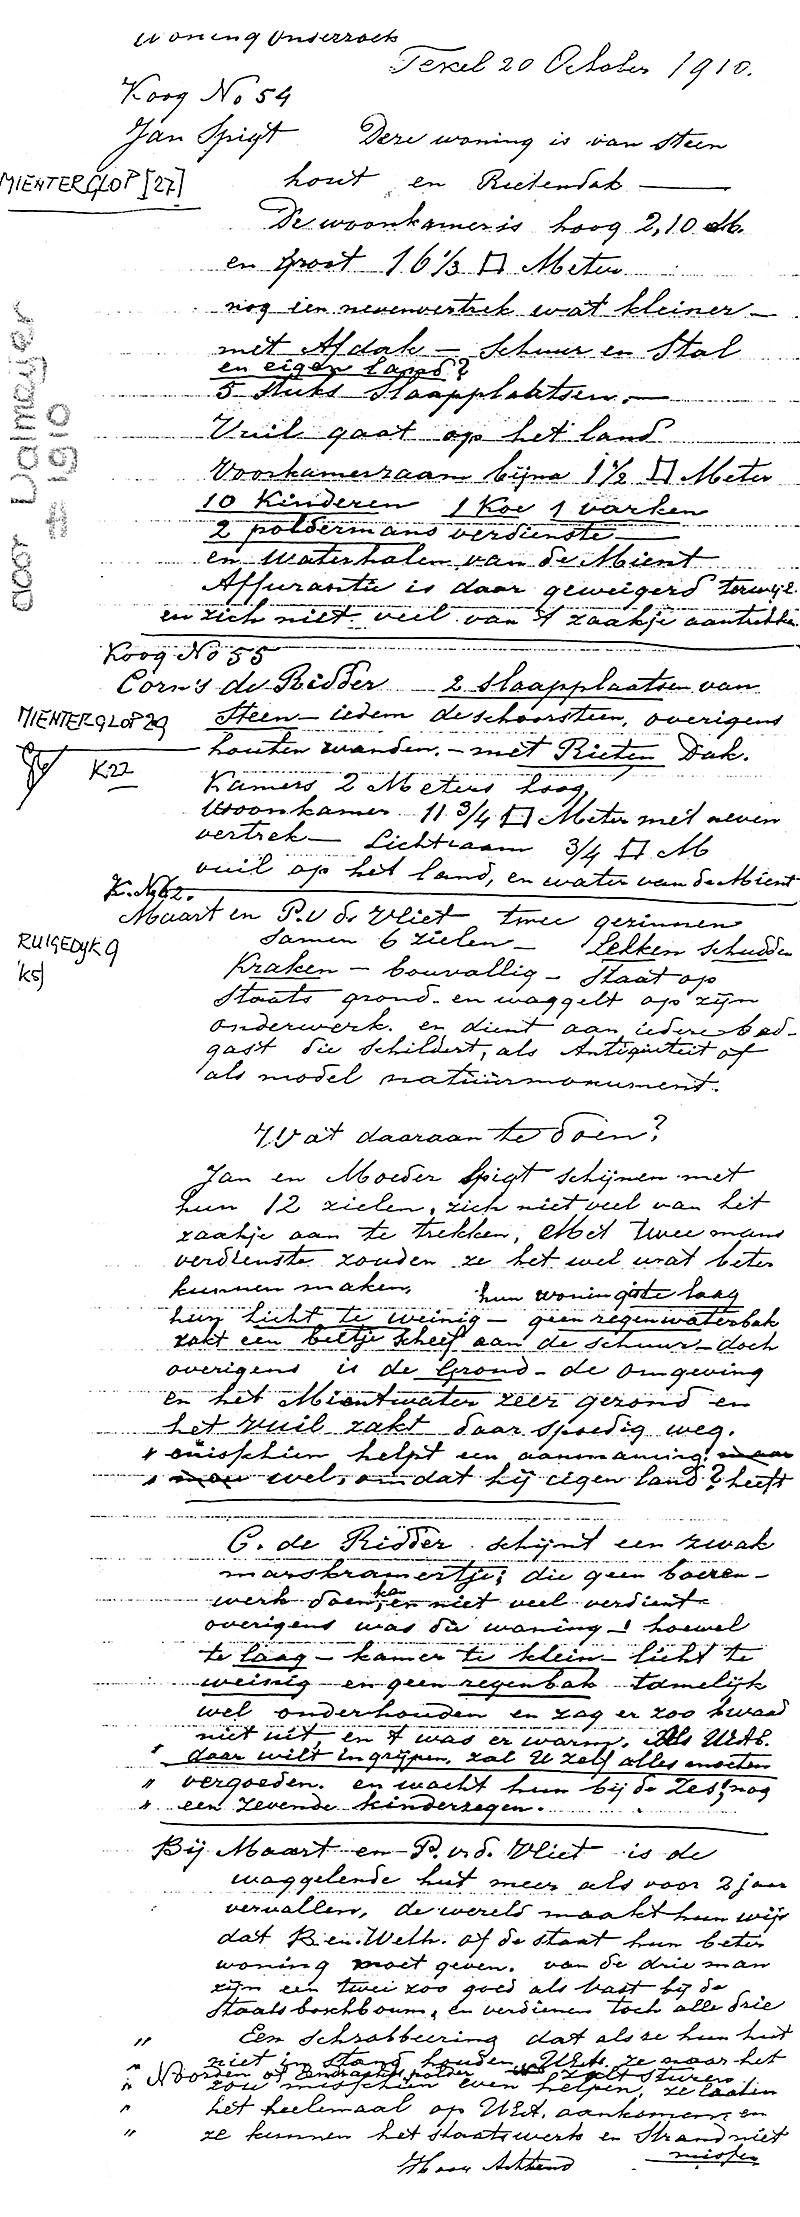 Woning Onderzoek
Texel 20 October 1910.
Koog No 54
Jan Spigt Deze woning is van steen
MIENTERGLOP [27] hout en Rietendak —
De woonkamer is hoog 2,10 M.
en groot 16 1/3 □ Meter
nog een nevenvertrek wat kleiner —
met Afdak — schuur en Stal
en eigen land?
5 stuks slaapplaatsen. —
Vuil gaat op het land
Voorkamerraam bijna 1 1/2 □ Meter
10 Kinderen 1 Koe 1 varken
2 poldermans verdienste —
en waterhalen van de Mient
Assurantie is daar geweigerd terwijl
en zich niet veel van 't zaakje aantrekke
door Dalmeijer
± 1910
Koog No 55
Corn's de Ridder 2 slaapplaatsen van
MIENTERGLOP 29 Steen — iedem de schoorsteen, overigens
houten wanden. — met Rieten Dak.
K.22 Kamers 2 Meters hoog,
Woonkamer 11 3/4 □ Meter met neven
vertrek — Lichtraam 3/4 □ M
vuil op het land, en water van de Mient
K. No 62.
Maart en P. v d. Vliet twee gezinnen
RUIGEDIJK 9 samen 6 zielen — Lekken schudden
K5) Kraken — bouvallig — staat op
Staats grond. en waggelt op zijn
onderwerk. en dient aan iedere bad-
gast die schildert, als Antiquiteit of
als model natuurmonument.
Wat daaraan te doen?
Jan en Moeder Spigt schijnen met
hun 12 zielen, zich niet veel van het
zaakje aan te trekken, Met twee mans
verdienste zouden ze het wel wat beter
kunnen maken, hun woning is te laag
hun licht te weinig — geen regenwaterbak
zakt een beetje scheef aan de schuur — doch
overigens is de Grond — de omgeving
en het Mientwater zeer gezond en
het vuil zakt daar spoedig weg.
" misschien helpt een aanmaning! maar
" wel, omdat hij eigen land? heeft
C. de Ridder schijnt een zwak
marskramertje; die geen boeren-
werk doen kan, en niet veel verdient
overigens was die woning —! hoewel
te laag — kamer te klein — licht te
weinig en geen regenbak tamelijk
wel onderhouden en zag er zoo kwaad
niet uit, en 't was er warm. Als UEA.
" daar wilt ingrijpen, zal U zelf alles moeten
" vergoeden. en wacht hun bij de zes! nog
" een zevende kinderzegen.
Bij Maart en P. v.d. Vliet is de
waggelende hut meer als voor 2 jaar
vervallen, de wereld maakt hun wijs
dat B. en Weth. of de staat hun beter
woning moet geven. van de drie man
zijn een twee zoo goed als vast bij de
Staatsboschbouw, en verdienen toch alle drie
" Een schrobbeering dat als ze hun hut
" niet in stand houden, UEA. ze naar het
" Noorden of Eendrachtspolder zult sturen
" zou misschien even helpen, ze laten
" het heelemaal op UEA. aankomen, en
" ze kunnen het staatswerk en Strand niet
missen